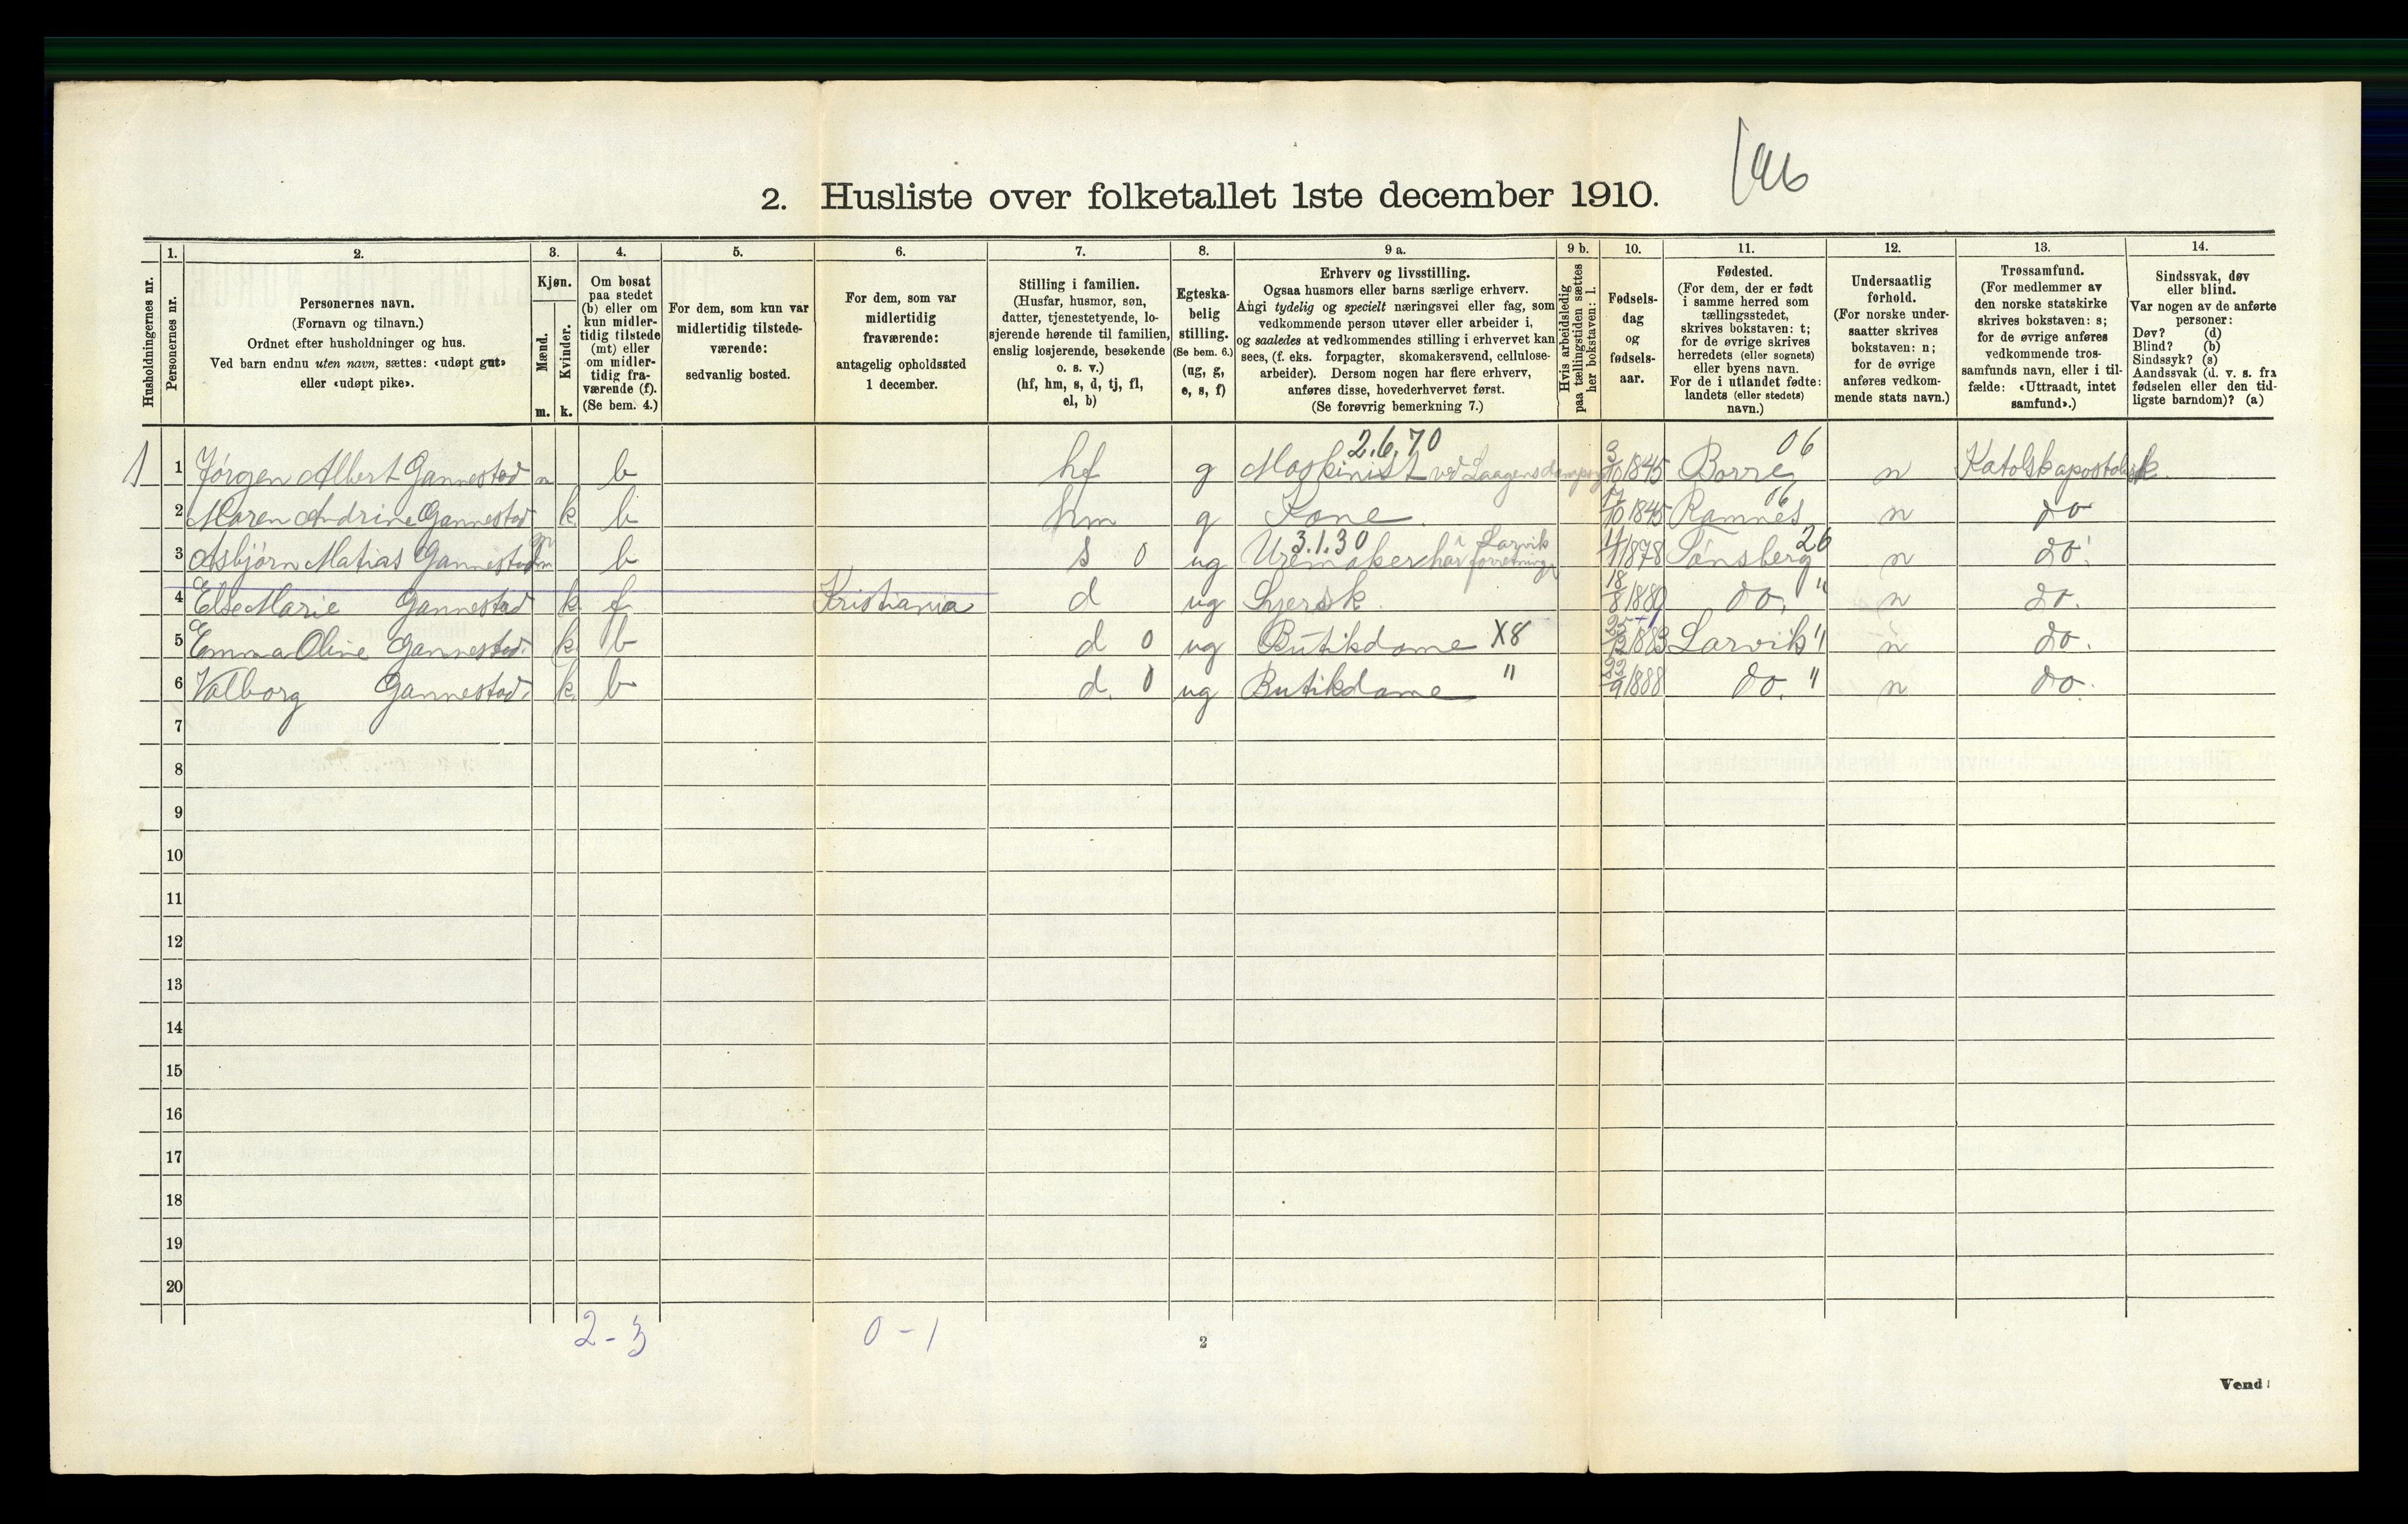 2. Husliste over folketallet 1ste december 1910.
Husholdningernes nr.
1.
Personernes nr.
2.
Personernes navn.
(Fornavn og tilnavn.)
Ordnet efter husholdninger og hus.
Ved barn endnu uten navn, sættes: «udøpt gut»
eller «udøpt pike».
3.
Kjøn.
Mænd.
m.
Kvinder.
k.
4.
Om bosat
paa stedet
(b) eller om
kun midler-
tidig tilstede
(mt) eller
om midler-
tidig fra-
værende (f).
(Se bem. 4.)
5.
For dem, som kun var
midlertidig tilstede-
værende:
sedvanlig bosted.
6.
For dem, som var
midlertidig
fraværende:
antagelig opholdssted
1 december.
7.
Stilling i familien.
(Husfar, husmor, søn,
datter, tjenestetyende, lo-
sjerende hørende til familien,
enslig losjerende, besøkende
o. s. v.)
(hf, hm, s, d, tj, fl,
el, b)
8.
Egteska-
belig
stilling.
(Se bem. 6.)
(ug, g,
e, s, f)
9 a.
Erhverv og livsstilling.
Ogsaa husmors eller barns særlige erhverv.
Angi tydelig og specielt næringsvei eller fag, som
vedkommende person utøver eller arbeider i,
og saaledes at vedkommendes stilling i erhvervet kan
sees, (f. eks. forpagter, skomakersvend, cellulose-
arbeider). Dersom nogen har flere erhverv,
anføres disse, hovederhvervet først.
(Se forøvrig bemerkning 7.)
9 b.
Hvis arbeidsledig
paa tællingstiden sættes
her bokstaven: l.
10.
Fødsels-
dag
og
fødsels-
aar.
11.
Fødested.
(For dem, der er født
i samme herred som
tællingsstedet,
skrives bokstaven: t;
for de øvrige skrives
herredets (eller sognets)
eller byens navn.
For de i utlandet fødte:
landets (eller stedets)
navn.)
12.
Undersaatlig
forhold.
(For norske under-
saatter skrives
bokstaven: n;
for de øvrige
anføres vedkom-
mende stats navn.)
13.
Trossamfund.
(For medlemmer av
den norske statskirke
skrives bokstaven: s;
for de øvrige anføres
vedkommende tros-
samfunds navn, eller i til-
fælde: «Uttraadt, intet
samfund».)
14.
Sindssvak, døv
eller blind.
Var nogen av de anførte
personer:
Døv? (d)
Blind? (b)
Sindssyk? (s)
Aandssvak (d. v. s. fra
fødselen eller den tid-
ligste barndom)? (a)
2.6.70 06
1 1 Jørgen Albert Gannestad m b hf g Maskinist ved Laagens dampsag 3/10 1845 Borre n Katolskapostolisk.
06
2 Maren Andrine Gannestad k b hm g Kone. 10 1845 Ramnes n do
3.1.30 i Larvik 26
3 Asbjørn Matias Gannestad m b s 0 ug Uremaker har forretning 1878 Tønsberg n do.
4 Else Marie Gannestad k f Kristiania d ug Syersk. 18/8 1880 do. " n do.
5 Emma Oline Gannestad. k b d 0 ug Butikdame X8 1883 Larvik " n do.
6 Valborg Gannestad. k b d. 0 ug Butikdame " 9 1888 do. " n do.
7
8
9
10
11
12
13
14
15
16
17
18
19
20
2-3 0-1
2
Vend!